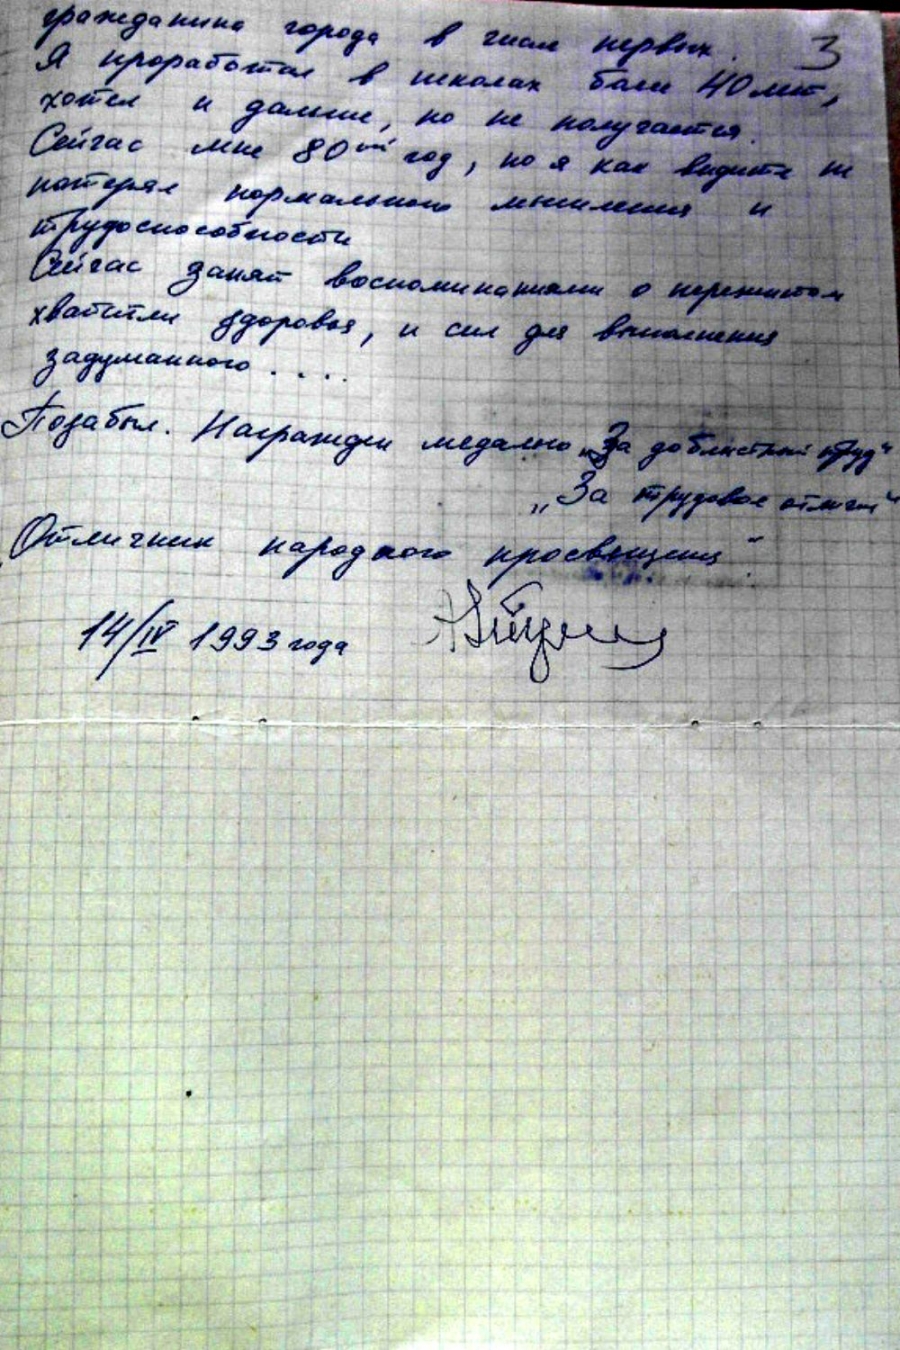 гражданина города в числе первых. 3
Я проработал в школах более 40 лет,
хотел и дальше, но не получается.
Сейчас мне 80ый год, но я как видите не
потерял нормального мышления и
трудоспособности
Сейчас занят воспоминаниями о пережитом
хватит ли здоровья, и сил для выполнения
задуманного . . . .
Позабыл. Награжден медалью „За доблестный труд"
„За трудовое отличие"
„Отличник народного просвещения"
14/IV 1993 года